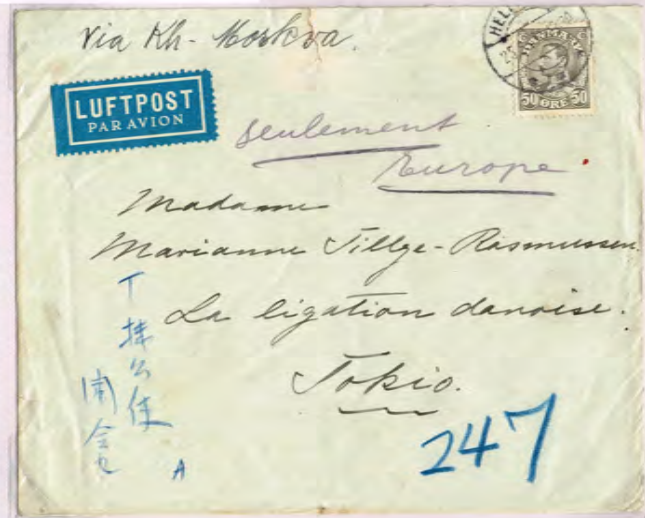 Via Kh- Moskva.
HEL
25
DANMARK
50 ØRE 50
LUFTPOST
PAR AVION
seulement
Europe
Madame
Marianne Tillge-Rasmussen.
La ligation danoise.
Tokio.
丁抹公使
A
247